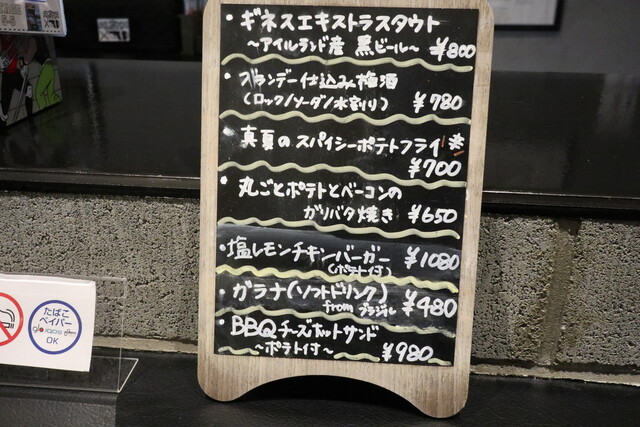 ・ギネスエキストラスタウト
～アイルランド産 黒ビール～ ¥800
・ブランデー仕込み梅酒
(ロック/ソーダ/水割り) ¥780
・真夏のスパイシーポテトフライ
¥700
・丸ごとポテトとベーコンの
ガリバタ焼き ¥650
・塩レモンチキンバーガー ¥1080
(ポテト付)
・ガラナ(ソフトドリンク) ¥480
from ブラジル
・BBQチーズホットサンド
～ポテト付～ ¥980
たばこ
ベイパー
glo IQOS
OK